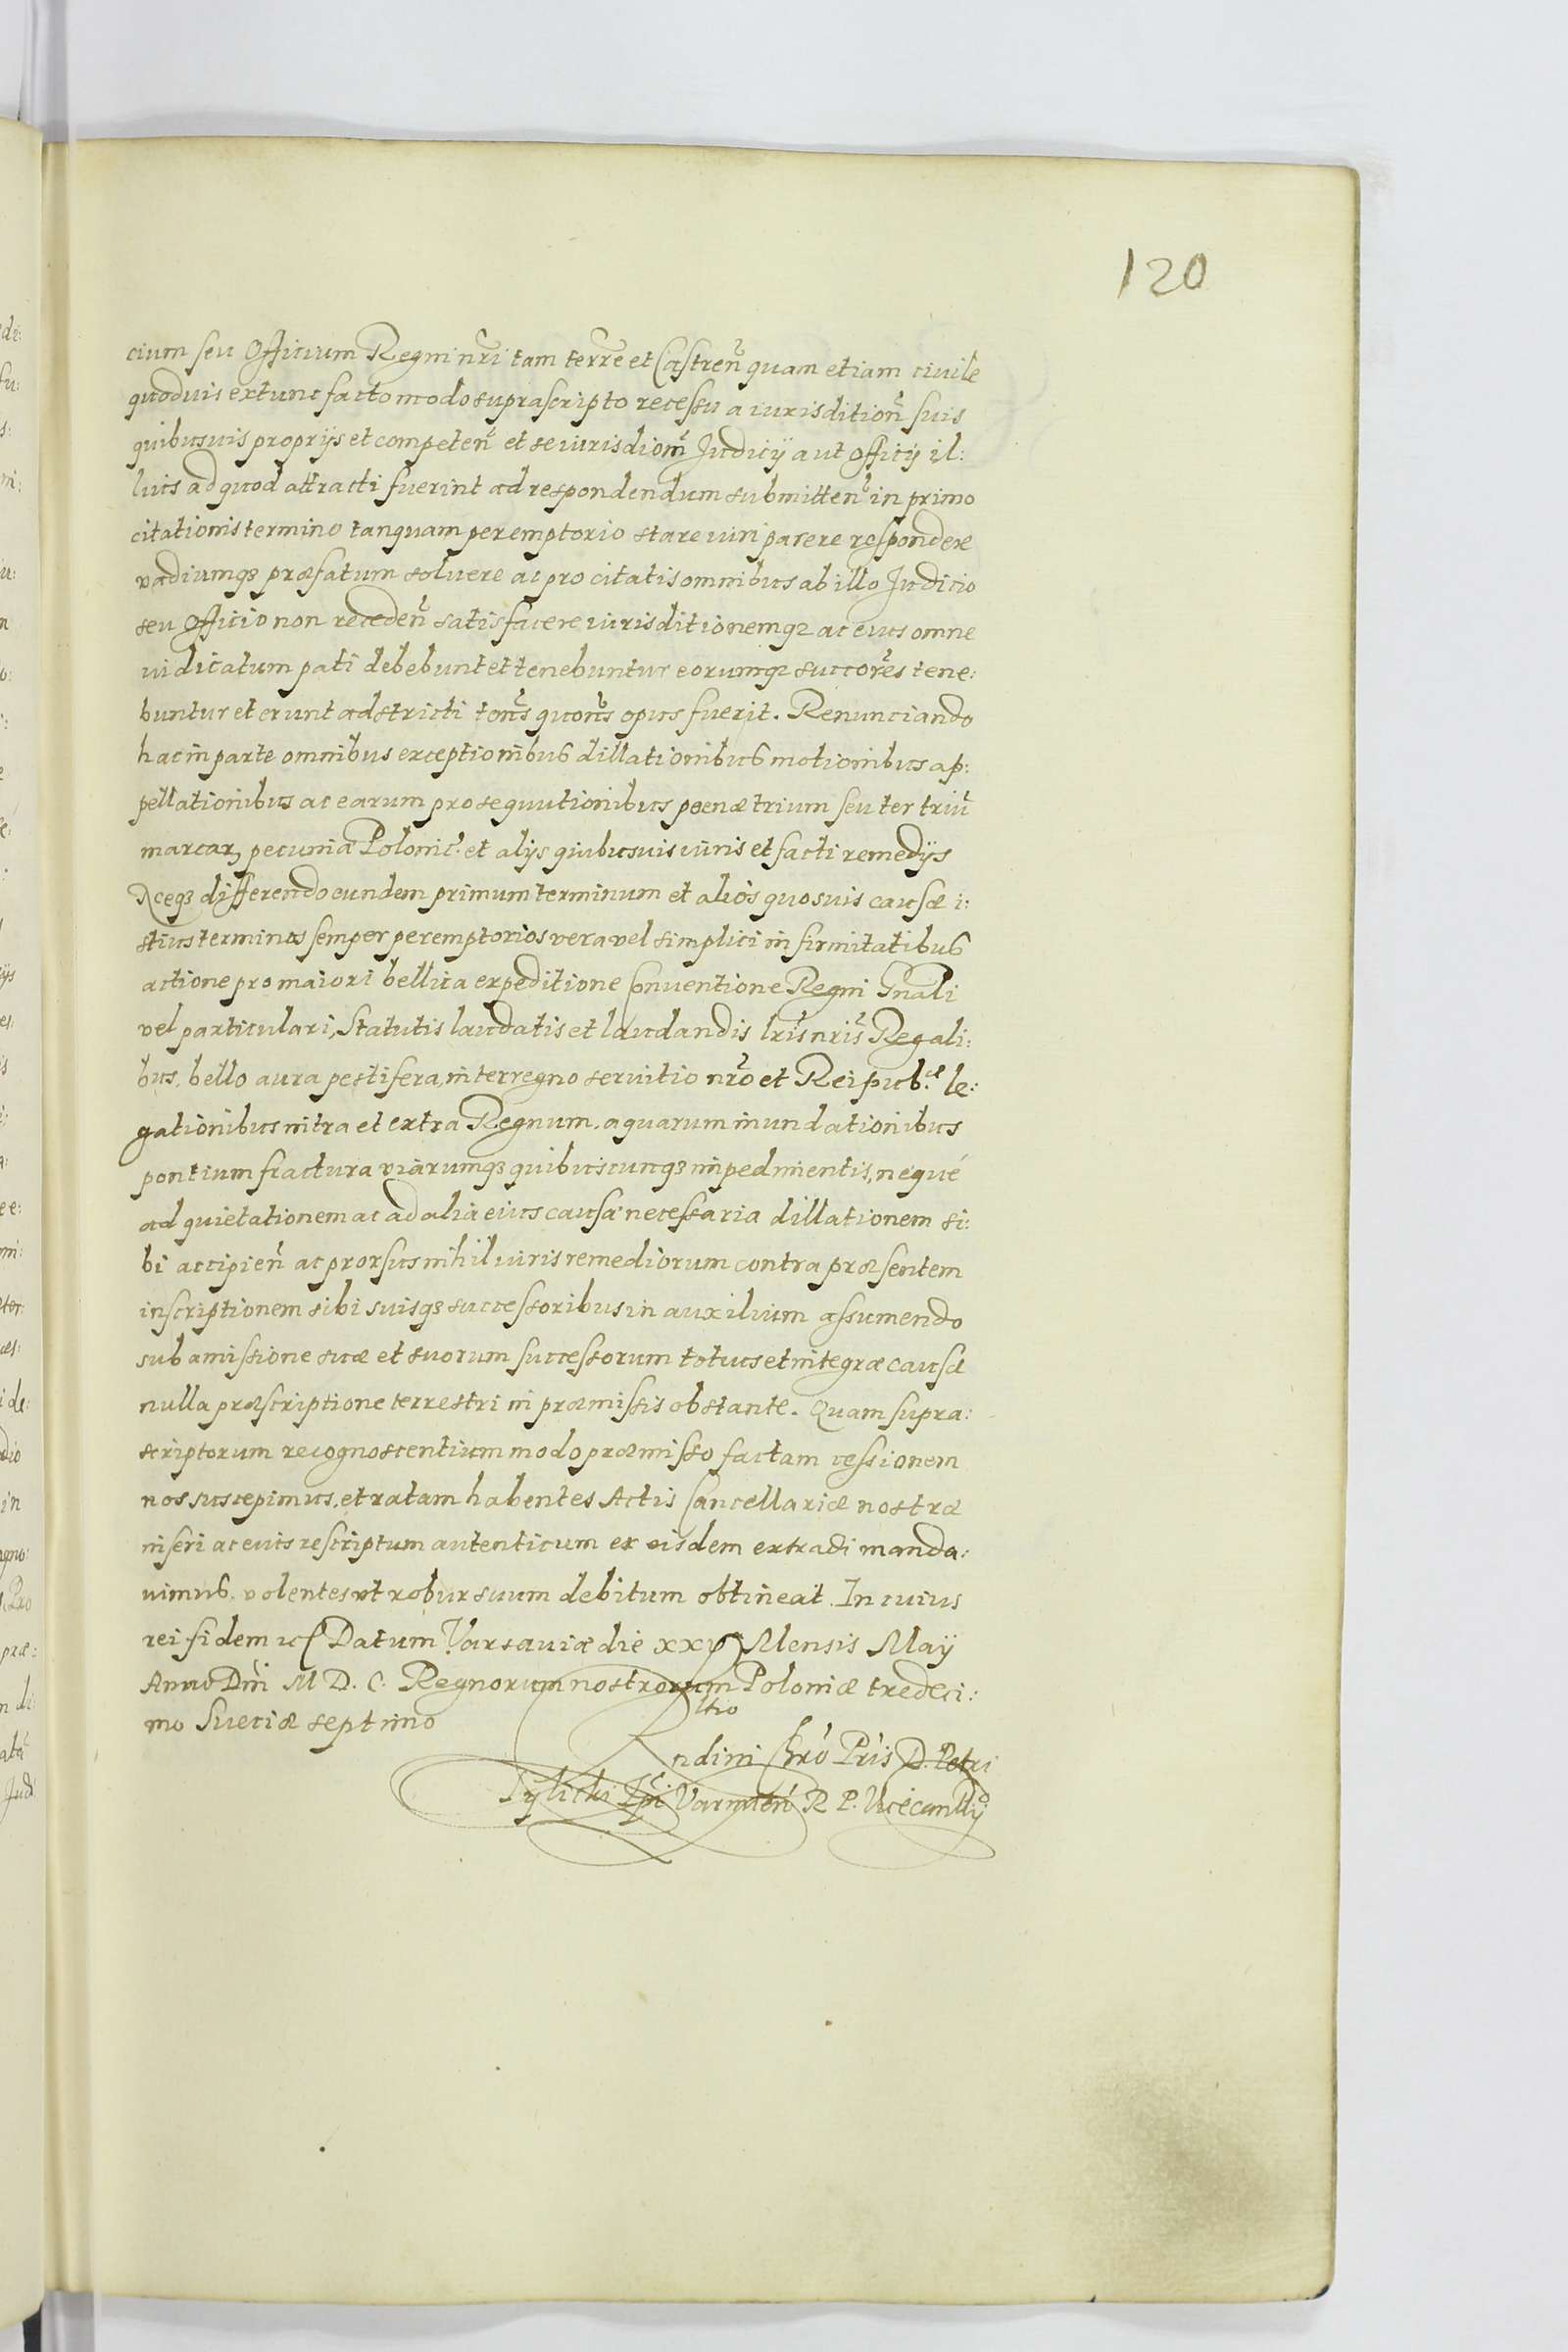 120
cium seu Officium Regni nr̃i tam terrẽ et Castreñ quam etiam ciuile
quoduis extunc facto modo suprascripto recessu a iurisdition̄ suis
quibusuis proprijs et competeñ et se iurisdiom̃ Judicij aut Officij il:
lius ad quod attracti fuerint ad respondendum submitteñ in primo
citationis termino tanquam peremptorio stare iuri parere respondere
vadiumqз præfatum soluere ac pro citatis omnibus ab illo Judicio
seu Officio non recedeñ satisfacere iurisditionemqз ac eius omne
iudicatum pati debebunt et tenebuntur eorumqз succorẽs tene:
buntur et erunt adstricti tõns quõns opus fuerit. Renunciando
hac in parte omnibus exceptionibus dillationibus motionibus ap:
pellationibus ac earum prosequutionibus poenæ trium seu ter triũ
marcarꝝ pecuniæ Polonic̃. et alijs quibusuis iuris et facti remedijs
Necqз differendo eundem primum terminum et alios quosuis causæ i:
stius terminos semper peremptorios vera vel simplici infirmitatibus
actione pro maiori bellica expeditione Conuentione Regni Gnãli
vel particulari, Statutis laudatis et laudandis lrĩs nrĩs Regali:
bus, bello aura pestifera, interregno seruitio nrõ et Reipub.cæ le:
gationibus intra et extra Regnum, aquarum inundationibus
pontium fractura viarumqз quibuscunqз impedimentis, nequé
ad quietationem ac ad alia eius causæ necessaria dillationem si:
bi accipieñ ac prorsus nihil iuris remediorum contra præsentem
inscriptionem sibi suisqз successoribus in auxilium assumendo
sub amissione suæ et suorum successorum totius et integræ causæ
nulla præscriptione terrestri in præmissis obstante. Quam supra:
scriptorum recognoscentium modo præmisso factam cessionem
nos suscepimus, et ratam habentes Actis Cancellariæ nostræ
inseri ac eius rescriptum autenticum ex eisdem extradi manda:
uimus, volentes vt robur suum debitum obtineat. In cuius
rei fidem Datum Varsauiæ die Mensis Maij
Anno Dnĩ M D. C. Regnorum nostrorum Poloniæ tredeci:
mo Sueciæ septimo
Rltio
Rndini Chrõ Prĩs D. Petri
Tylicki Epĩ Varmień R P. Vicecancllij